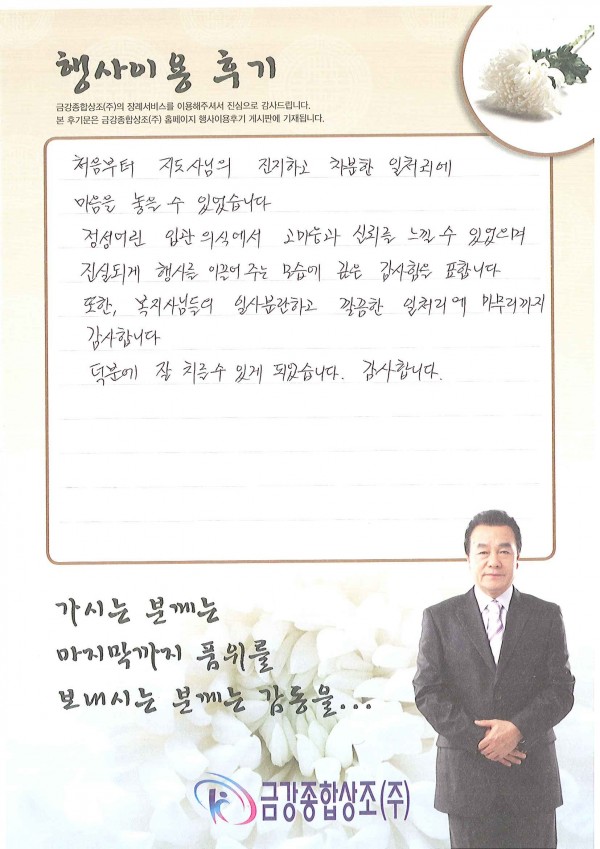 행사이용 후기
금강종합상조(주)의 장례서비스를 이용해주셔서 진심으로 감사드립니다.
본 후기문은 금강종합상조(주) 홈페이지 행사이용후기 게시판에 기재됩니다.
처음부터 지도사님의 진지하고 차분한 일처리에
마음을 놓을 수 있었습니다
정성어린 입관 의식에서 고마움과 신뢰를 느낄 수 있었으며
진실되게 행사를 이끌어 주는 모습에 깊은 감사함을 표합니다
또한, 복지사님들의 일사분란하고 깔끔한 일처리에 마무리까지
감사합니다
덕분에 잘 치를수 있게 되었습니다. 감사합니다.
가시는 분께는
마지막까지 품위를
보내시는 분께는 감동을...
금강종합상조(주)